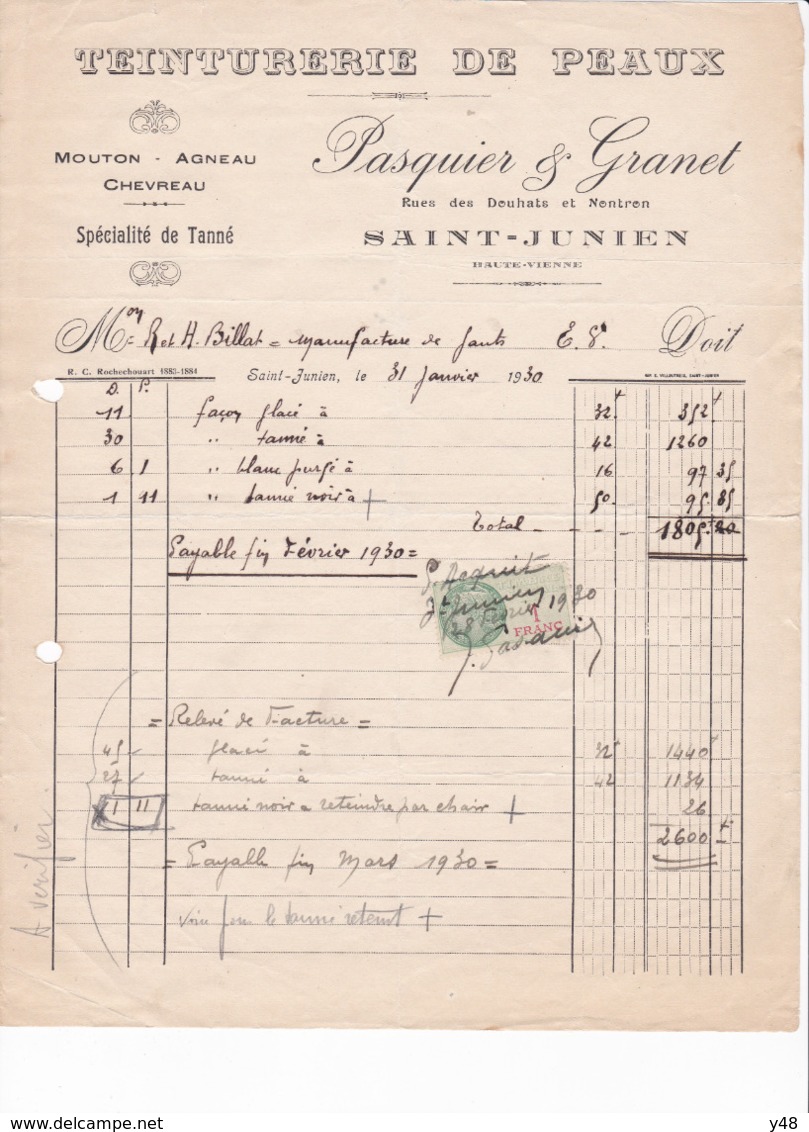 TEINTURERIE DE PEAUX
MOUTON - AGNEAU
CHEVREAU
Spécialité de Tanné
Pasquier & Granet
Rues des Douhats et Nontron
SAINT-JUNIEN
HAUTE-VIENNE
Mon R et H. Billat = Manufacture de gants E. V. Doit
R. C. Rochechouart 1883-1884
Saint-Junien, le 31 Janvier 1930
D. P.
11 façon glacé à 32 f 352 f
30 " tanné à 42 1260
6 1 " blanc purgé à 16 97 35
1 11 " tanné noir à + 50 95 85
Total - - - - 1805 f 20
Payable fin Février 1930 =
P. Acquit
St Junien
28 Février 1930
1 FRANC
J. Pasquier
= Relevé de Facture =
45 glacé à 32 f 1440 f
27 tanné à 42 1134
1 11 tanné noir a reteindre par chair + 26
2600 f
= Payable fin Mars 1930 =
Voir pour le tanné reteint +
A vérifier.
delcampe.net
y48